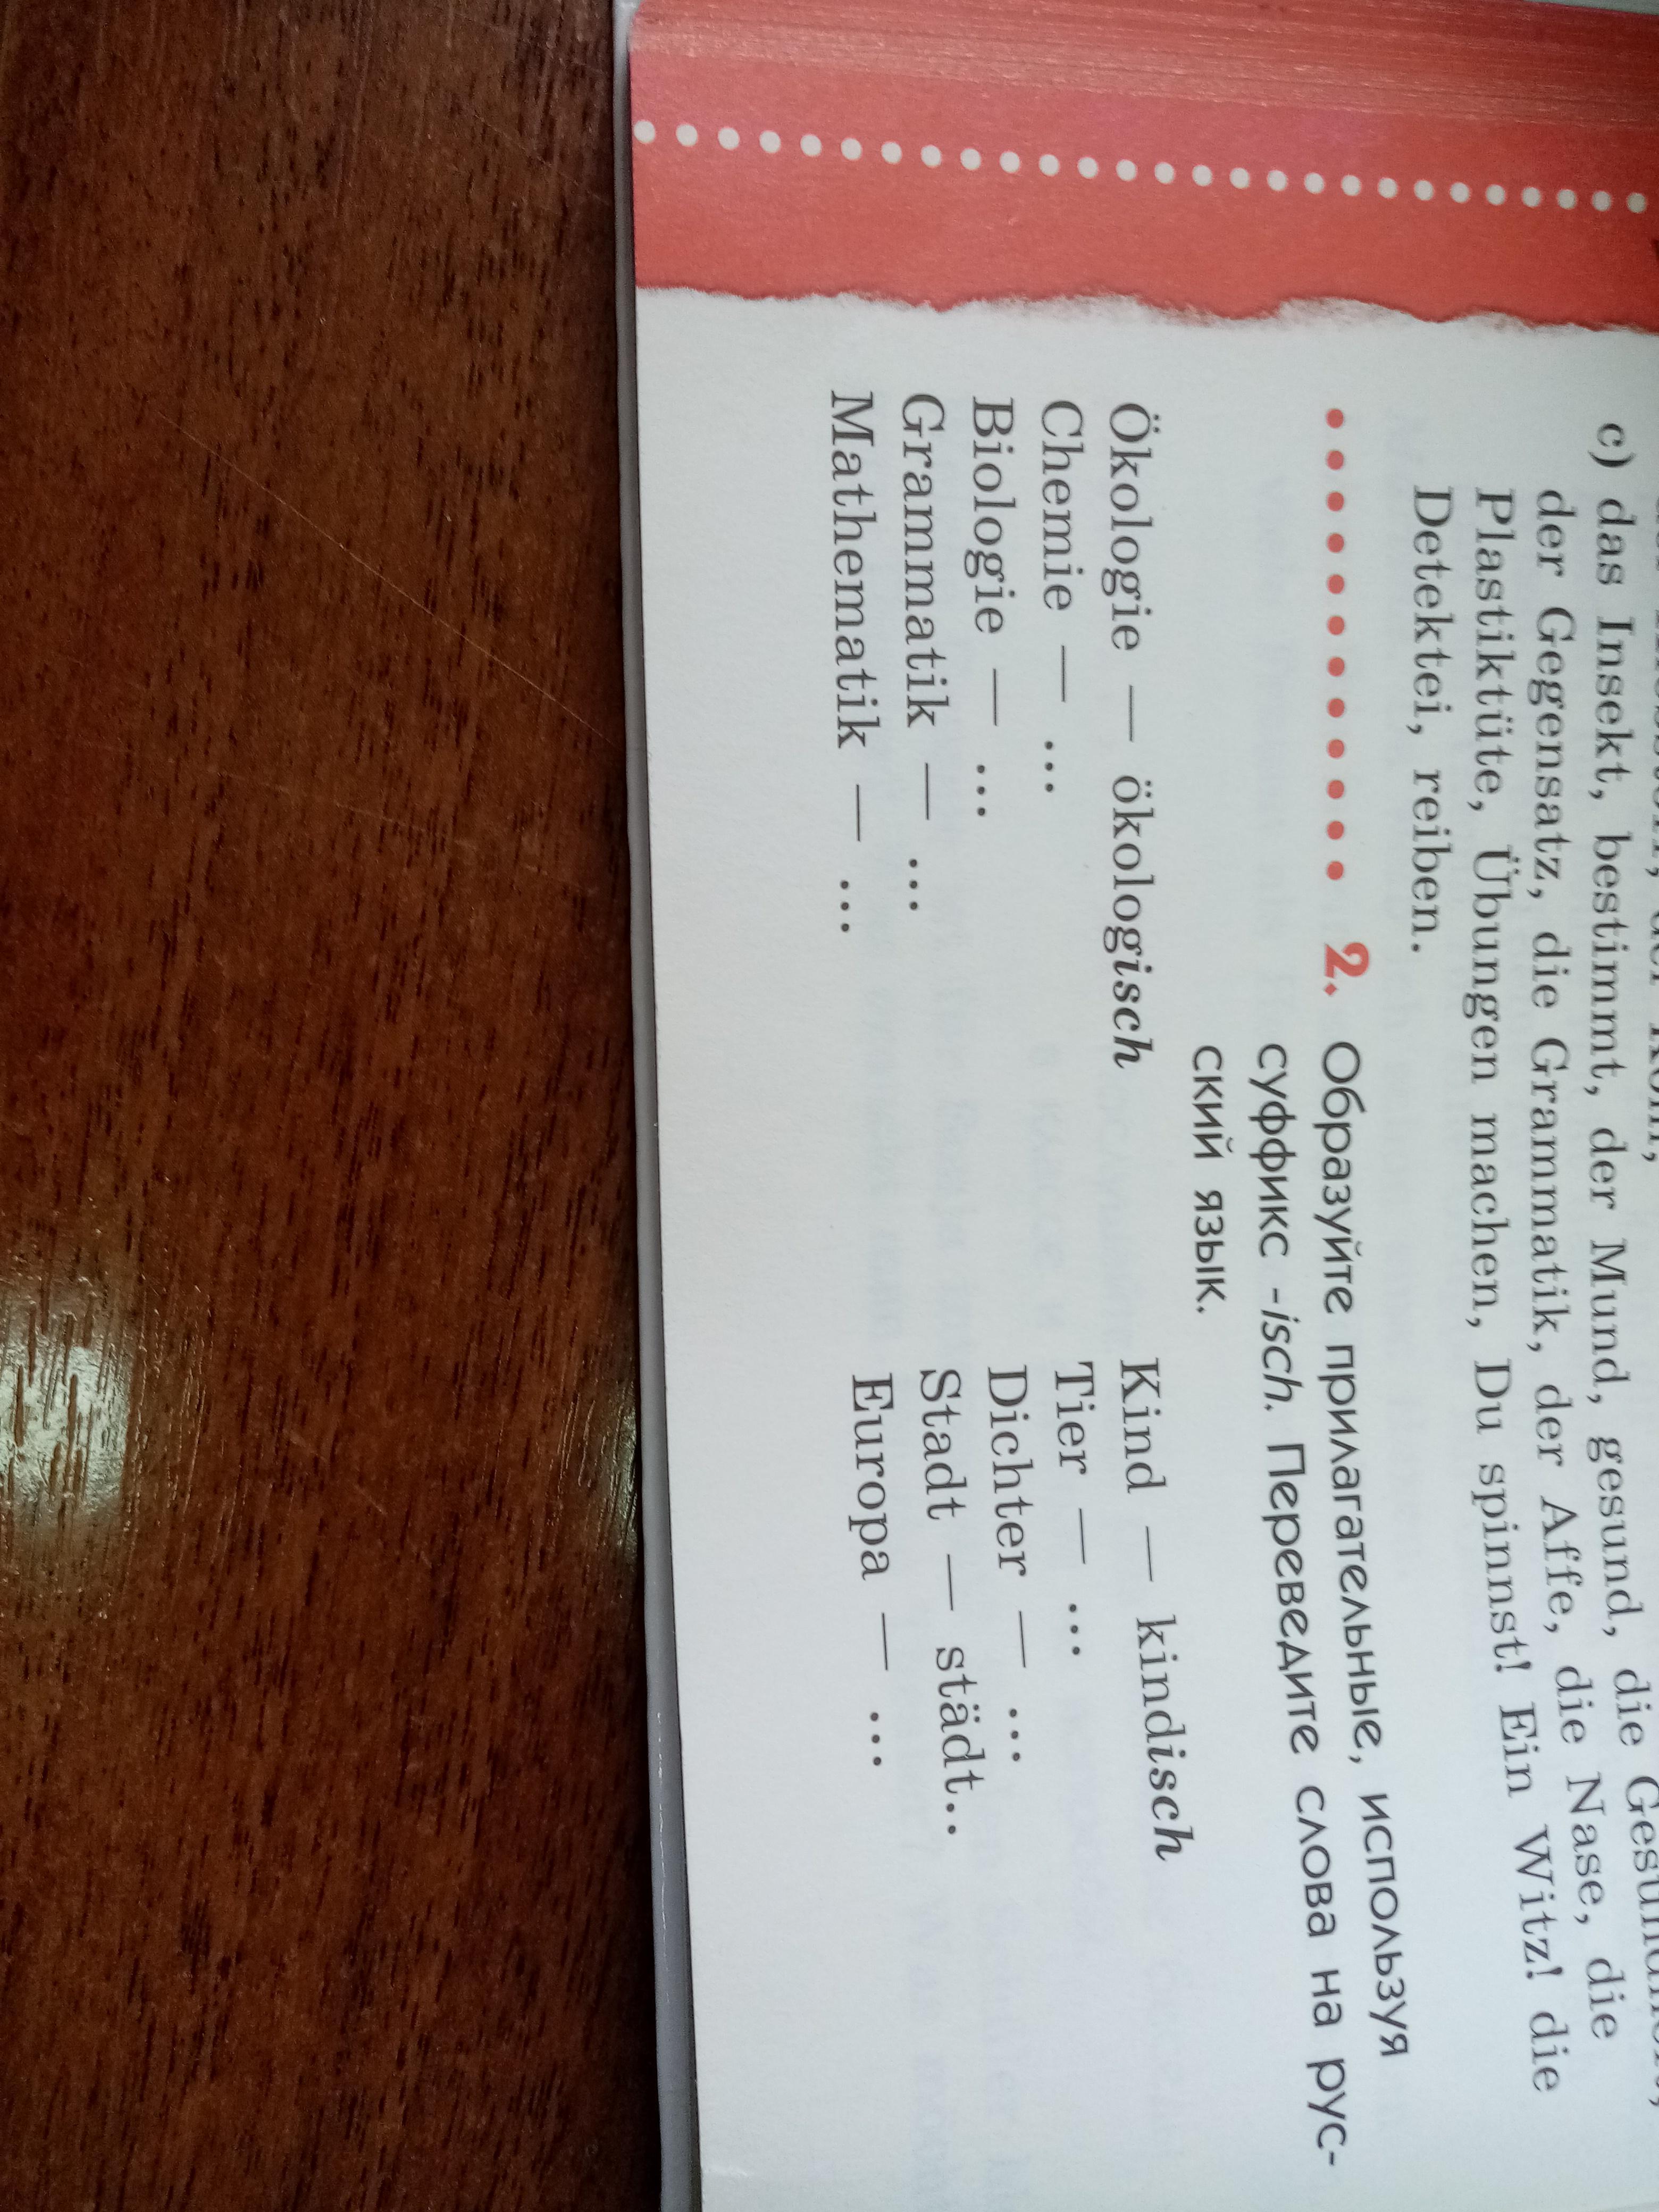 c) das Insekt, bestimmt, der Mund, gesund, die
der Gegensatz, die Grammatik, der Affe, die Nase, die
Plastiktüte, Übungen machen, Du spinnst! Ein Witz! die
Detektei, reiben.
2. Образуйте прилагательные, используя
суффикс -isch. Переведите слова на рус-
ский язык.
Ökologie — ökologisch
Chemie — ...
Biologie — ...
Grammatik — ...
Mathematik — ...
Kind — kindisch
Tier — ...
Dichter — ...
Stadt — städt...
Europa — ...